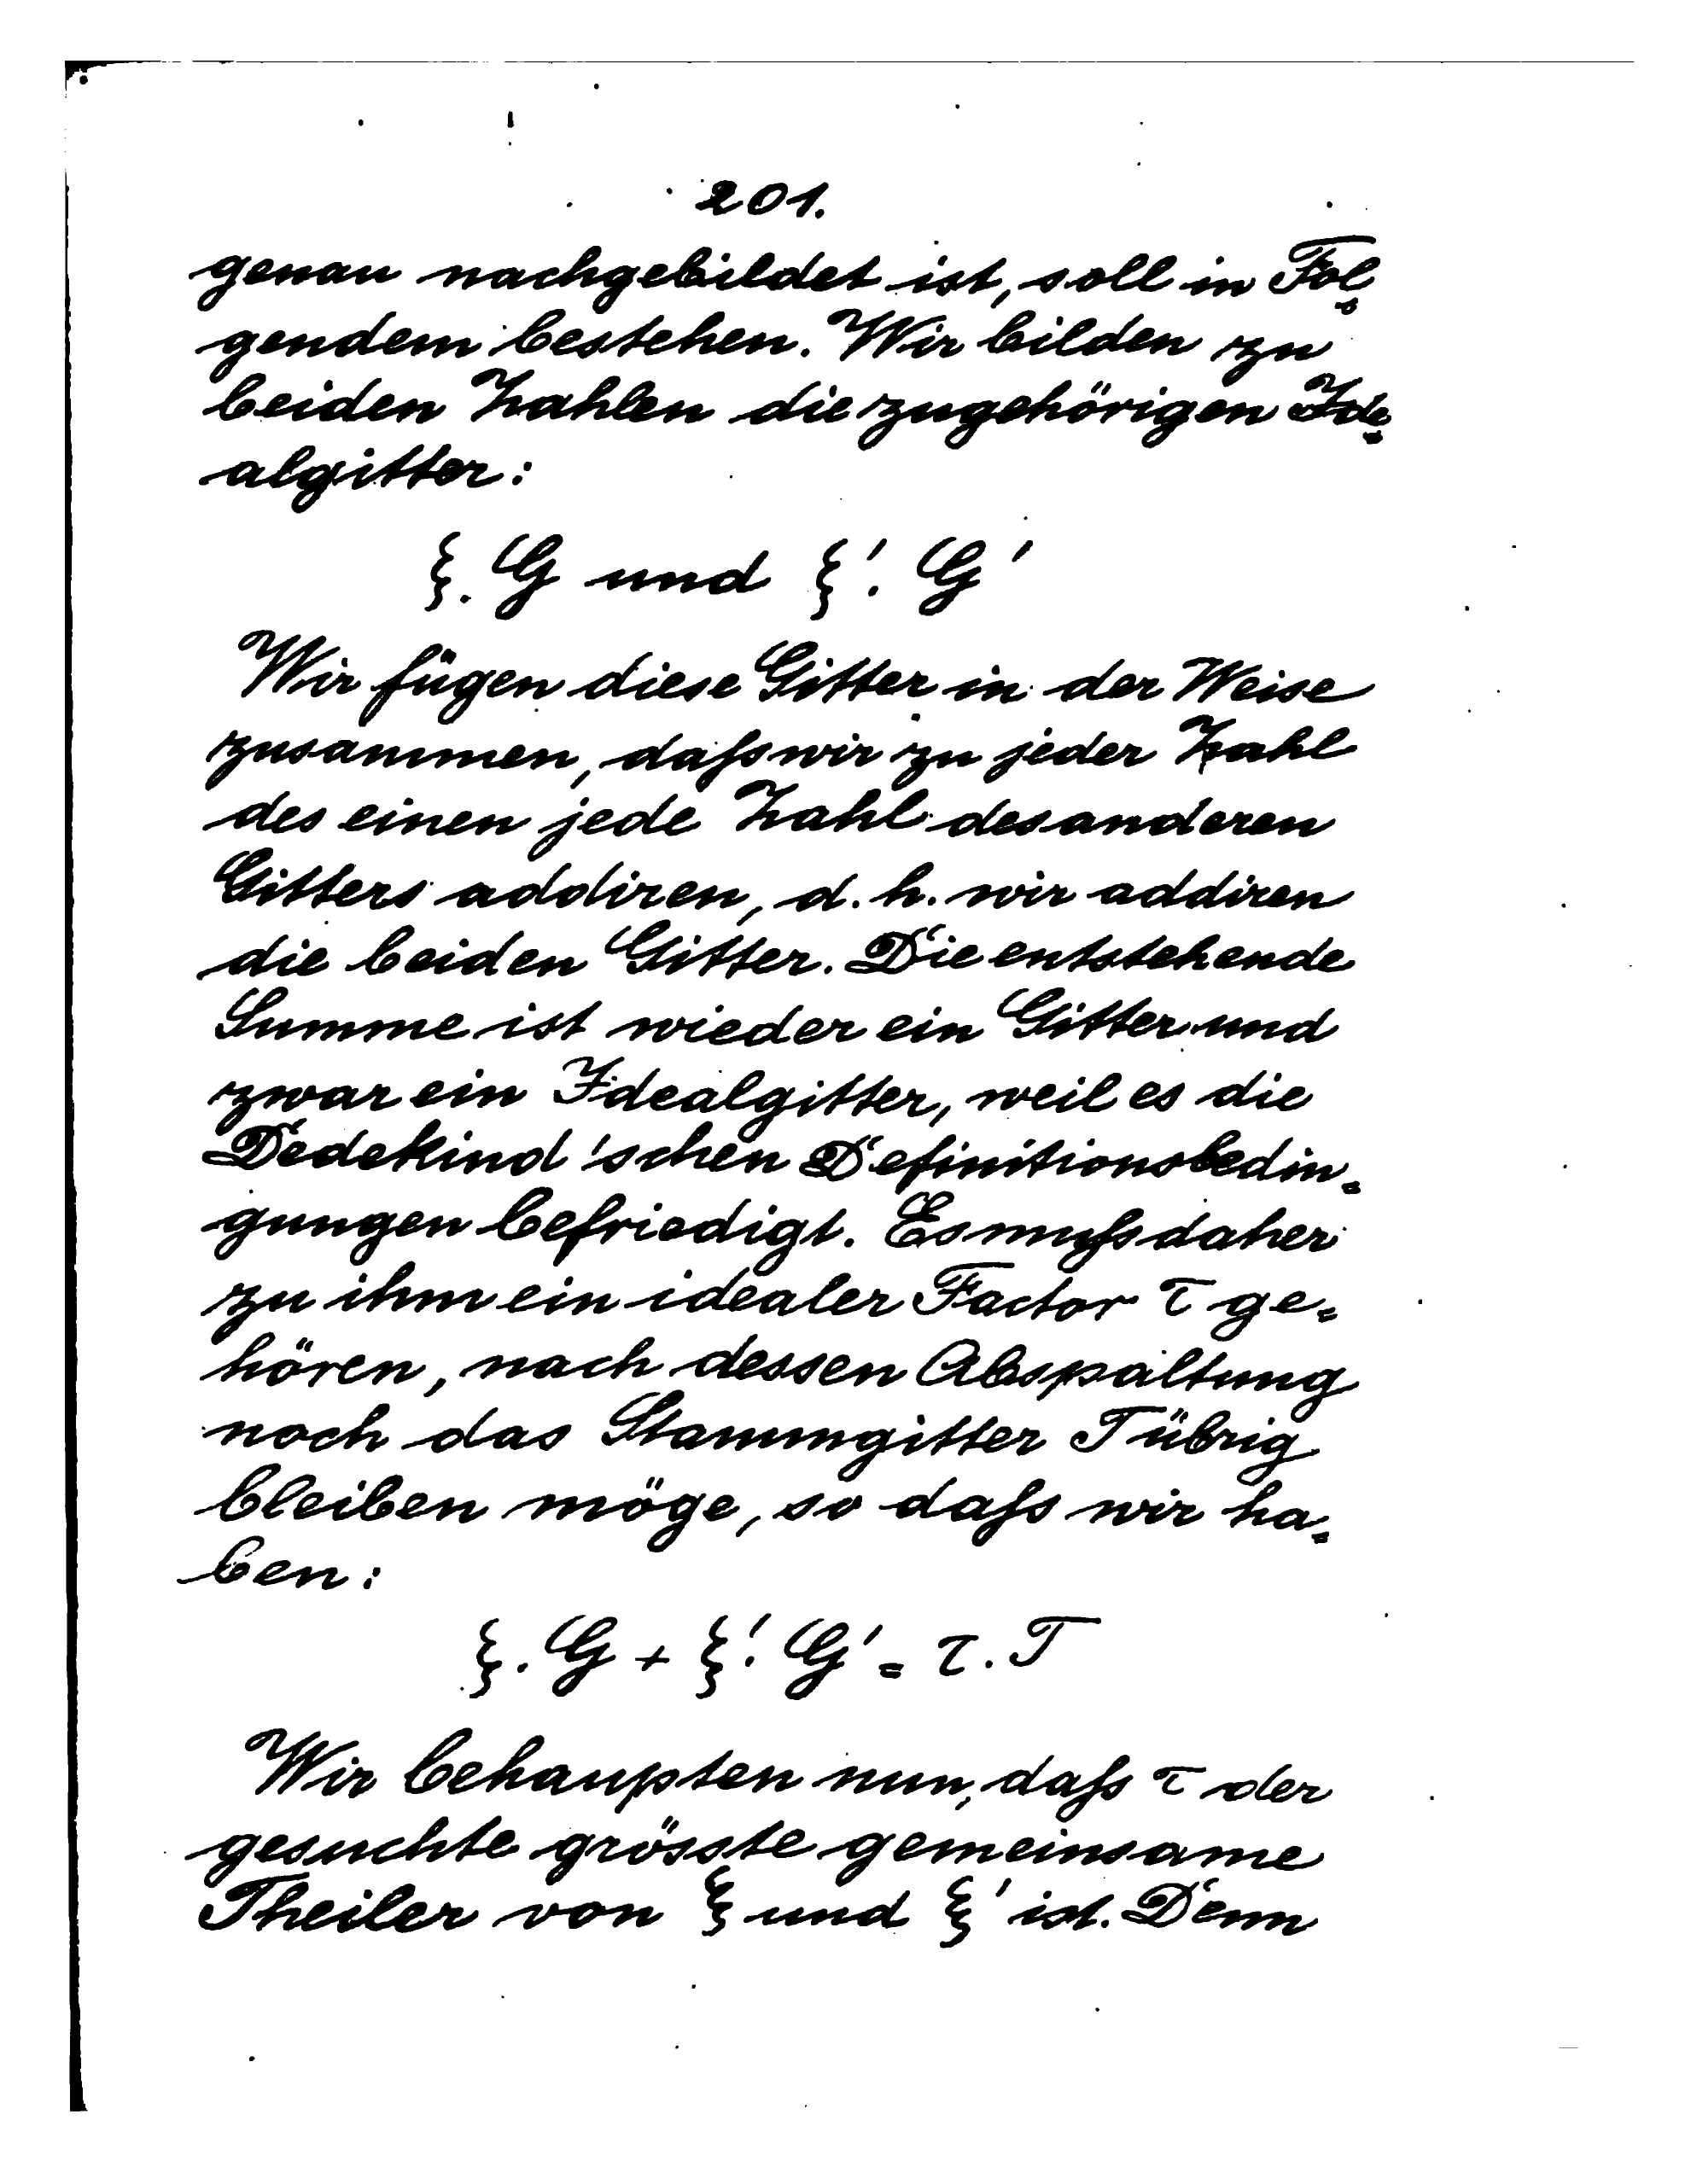 201.
genau nachgebildet ist, soll in Fol=
gendem bestehen. Wir bilden zu
beiden Zahlen die zugehörigen Ide=
algitter:
ξ. G und ξ'. G'
Wir fügen diese Gitter in der Weise
zusammen, daſs wir zu jeder Zahl
des einen jede Zahl des anderen
Gitters addiren, d. h. wir addiren
die beiden Gitter. Die entstehende
Summe ist wieder ein Gitter und
zwar ein Idealgitter, weil es die
Dedekind'schen Definitionsbedin=
gungen befriedigt. Es muſs daher
zu ihm ein idealer Factor τ ge=
hören, nach dessen Abspaltung
noch das Stammgitter T übrig
bleiben möge, so daſs wir ha=
ben:
ξ. G + ξ'. G' = τ. T
Wir behaupten nun, daſs τ der
gesuchte grösste gemeinsame
Theiler von ξ und ξ' ist. Denn